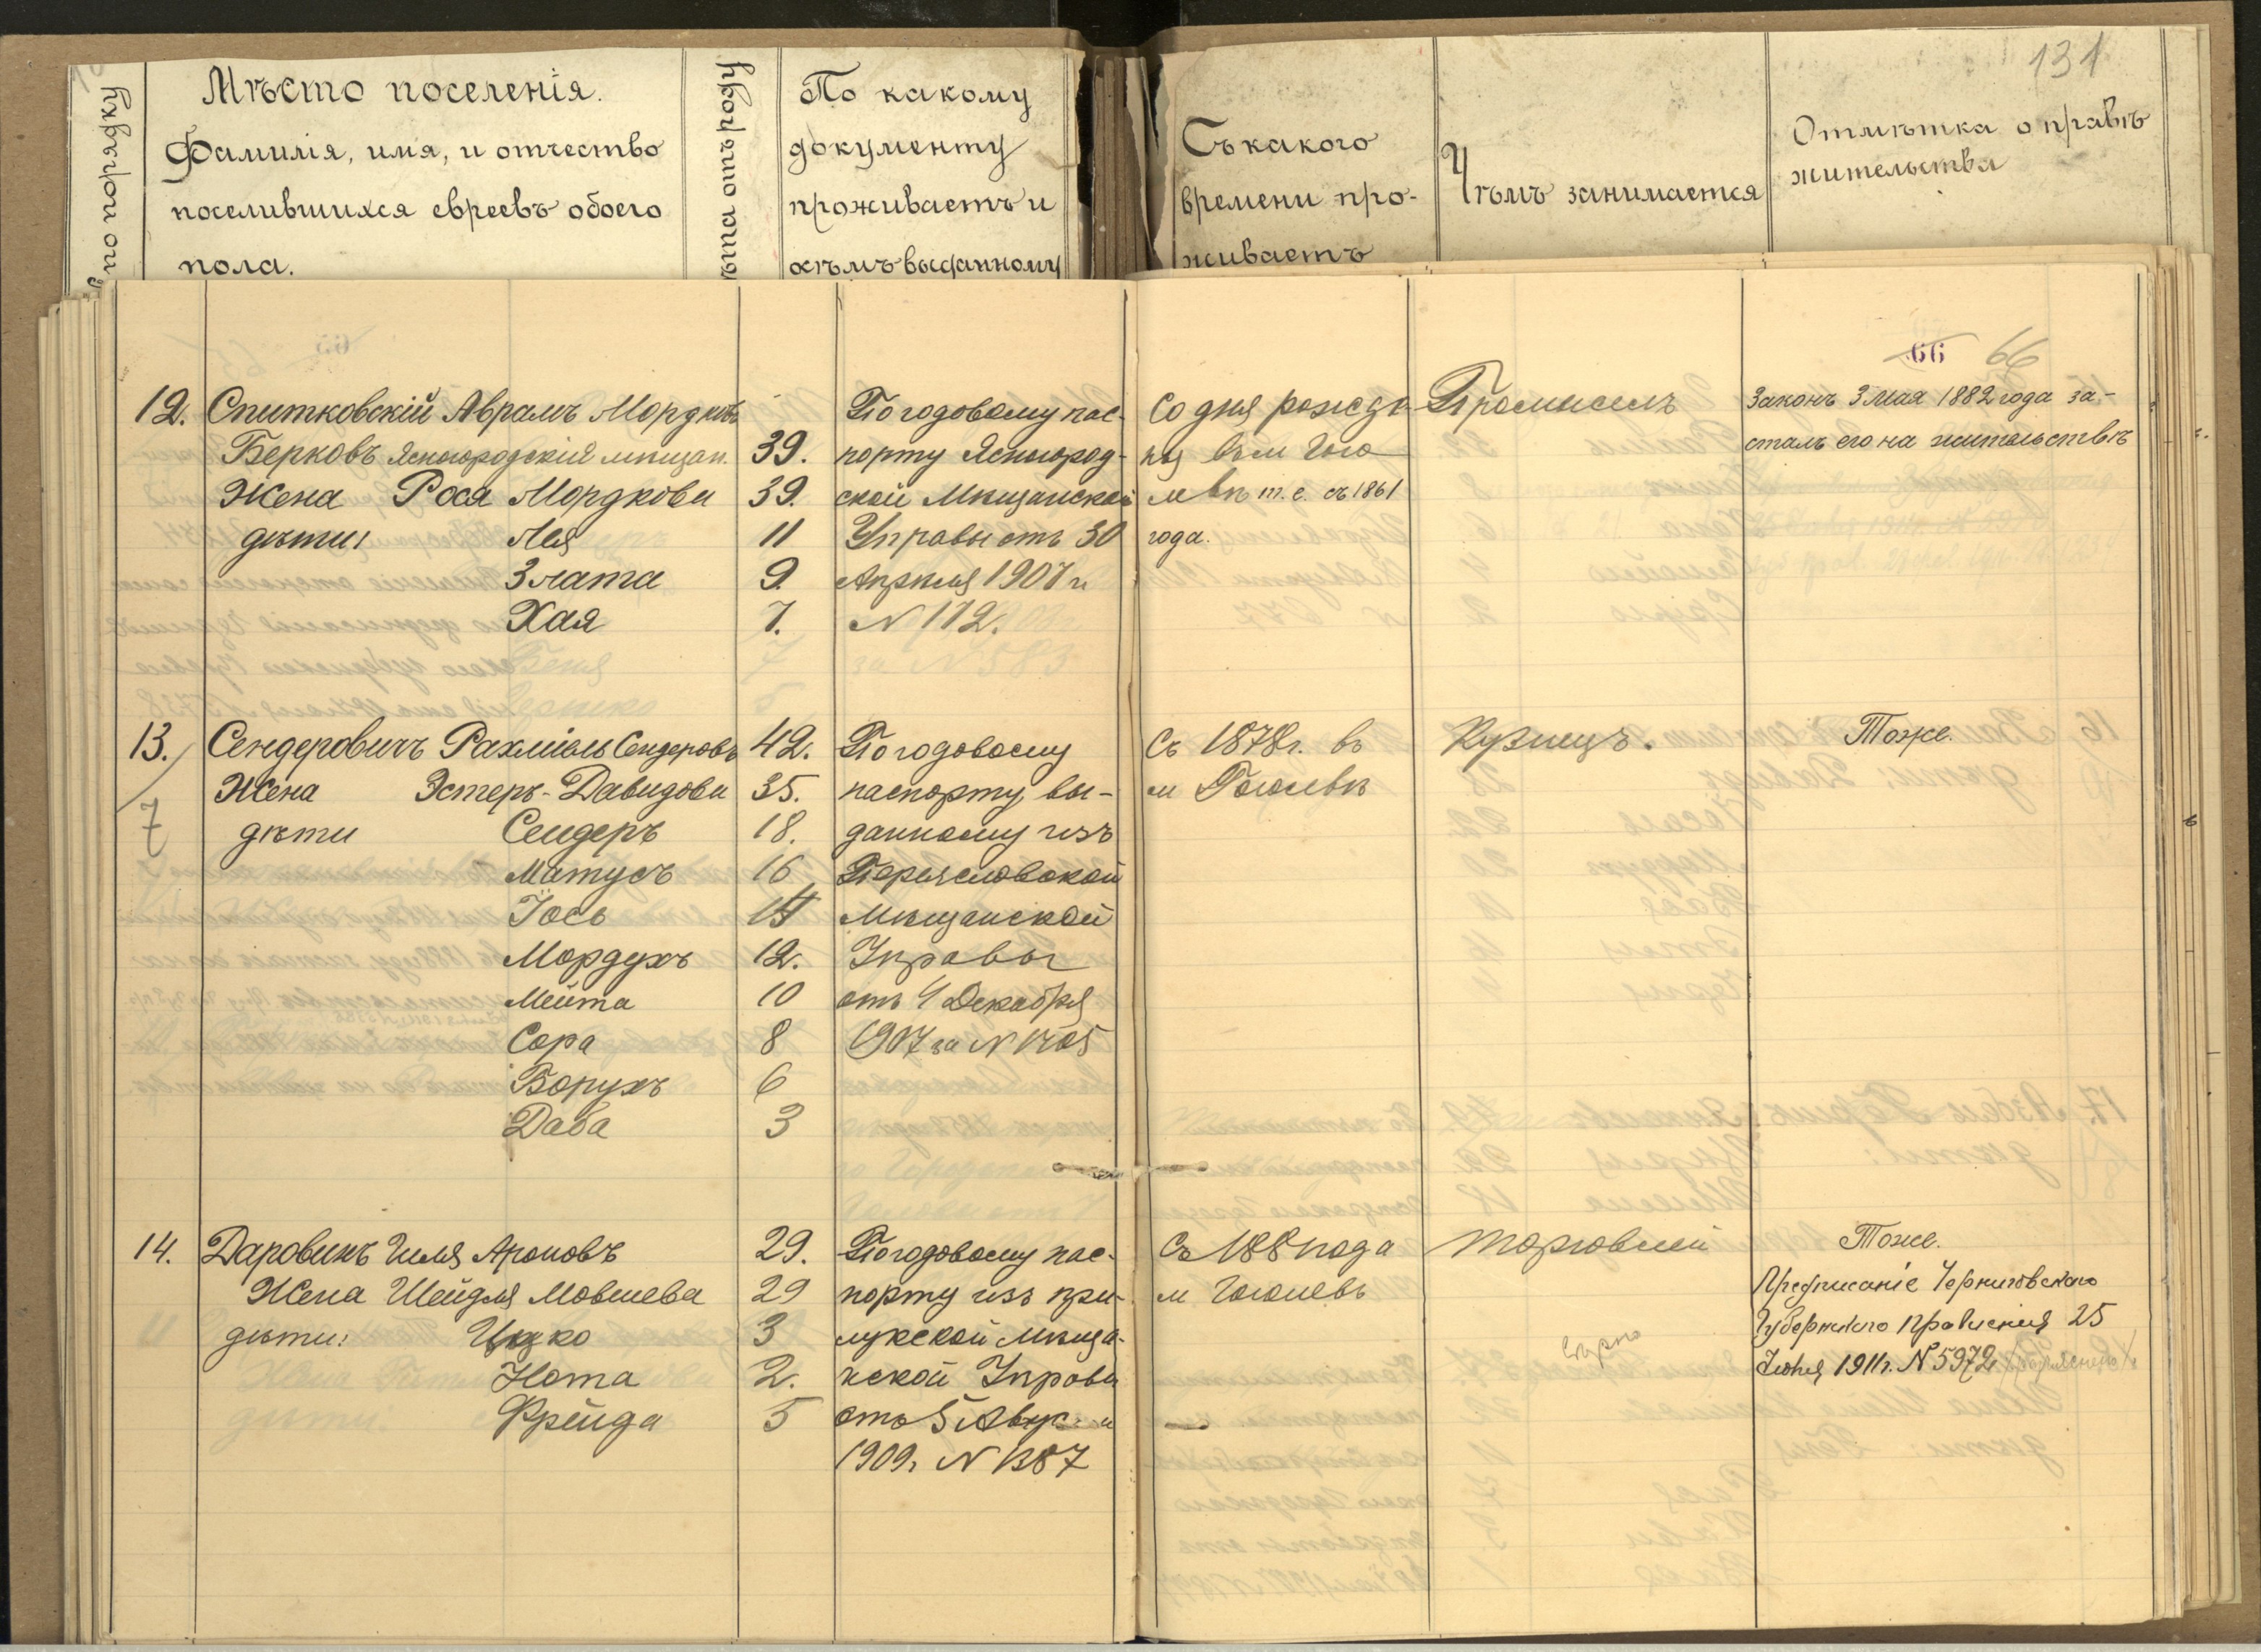 131
по порядку
Мѣсто поселенія.
Фамилія, имя, и отчество
поселившихся евреевъ обоего
пола.
ѣта отъ роду
По какому
документу
проживаетъ и
кѣмъ выданному
Съ какого
времени про-
живаетъ
Чѣмъ занимается
Отмѣтка о правѣ
жительства
66 66
12. Спитковскій Аврамъ Мордковъ
Берковъ Ясногородскій мѣщан. 39.
Жена Рося Мордкова 39.
дѣти: Лея 11
Злата 9.
Хая 7.
По годовому пас-
порту Ясногород-
ской Мѣщанской
Управы отъ 30
Апрѣля 1907 г.
N 112.
Со дня рожде-
нія въ м Гого
левѣ т. е. съ 1861
года.
Промыселъ
Законъ 3 мая 1882 года за-
сталъ его на жительствѣ
13. Сендеровичъ Рахміель Сендеровъ 42.
Жена Эстеръ-Давидова 35.
7
дѣти Сендеръ 18.
Матусъ 16
Іось 14
Мордухъ 12.
Мейта 10
Сора 8
Борухъ 6
Даба 3
По годовому
паспорту, вы-
данному изъ
Переяславской
Мѣщанской
Управы
отъ 4 Декабря
1907 за N 1705
Съ 1878 г. въ
м Гоголевѣ
Кузнецъ.
Тоже.
14. Даровикъ Гиля Ароновъ 29.
Жена Шейдля Мовшева 29
дѣти: Ицко 3
Нота 2.
Фрейда 5
По годовому пас-
порту изъ при-
лукской мѣща-
нской Управы
отъ 5 Авгус
1909 г. N 1387
Съ 1881 года
м Гоголевъ
торговлей
Тоже.
Предписаніе Черниговскаго
Губернскаго Правленія 25
Іюня 1911 г. N 5972